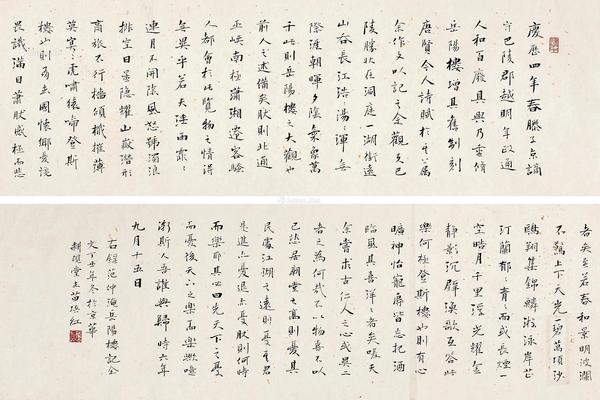 慶曆四年春滕子京謫
守巴陵郡越明年政通
人和百廢具興乃重脩
岳陽樓增其舊制刻
唐賢今人詩賦於其上屬
余作文以記之余觀夫巴
陵勝狀在洞庭一湖銜遠
山吞長江浩浩湯湯橫無
際涯朝暉夕陰氣象萬
千此則岳陽樓之大觀也
前人之述備矣然則北通
巫峽南極瀟湘遷客騷
人多會於此覽物之情得
無異乎若夫淫雨霏霏
連月不開陰風怒號濁浪
排空日星隱耀山岳潛形
商旅不行檣傾楫摧薄
暮冥冥虎嘯猿啼登斯
樓也則有去國懷鄉憂讒
畏譏滿目蕭然感極而悲
者矣至若春和景明波瀾
不驚上下天光一碧萬頃沙
鷗翔集錦鱗游泳岸芷
汀蘭郁郁青青而或長煙一
空皓月千里浮光耀金
靜影沉璧漁歌互答此
樂何極登斯樓也則有心
曠神怡寵辱皆忘把酒
臨風其喜洋洋者矣嗟夫
余嘗求古仁人之心或異二
者之為何哉不以物喜不以
己悲居廟堂之高則憂其
民處江湖之遠則憂其君
是進亦憂退亦憂然則何時
而樂耶其必曰先天下之憂
而憂後天下之樂而樂歟噫
微斯人吾誰與歸時六年
九月十五日
右錄范仲淹岳陽樓記全
文丁年冬於京華
堂主張紅